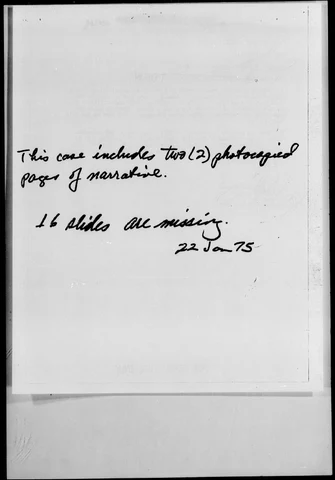 This case includes two (2) photocopied
pages of narrative.
16 slides are missing.
22 Jan 75